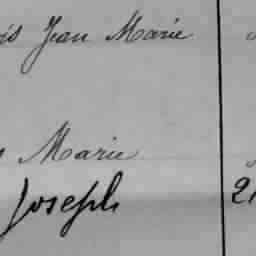 Jean Marie
Marie
Joseph